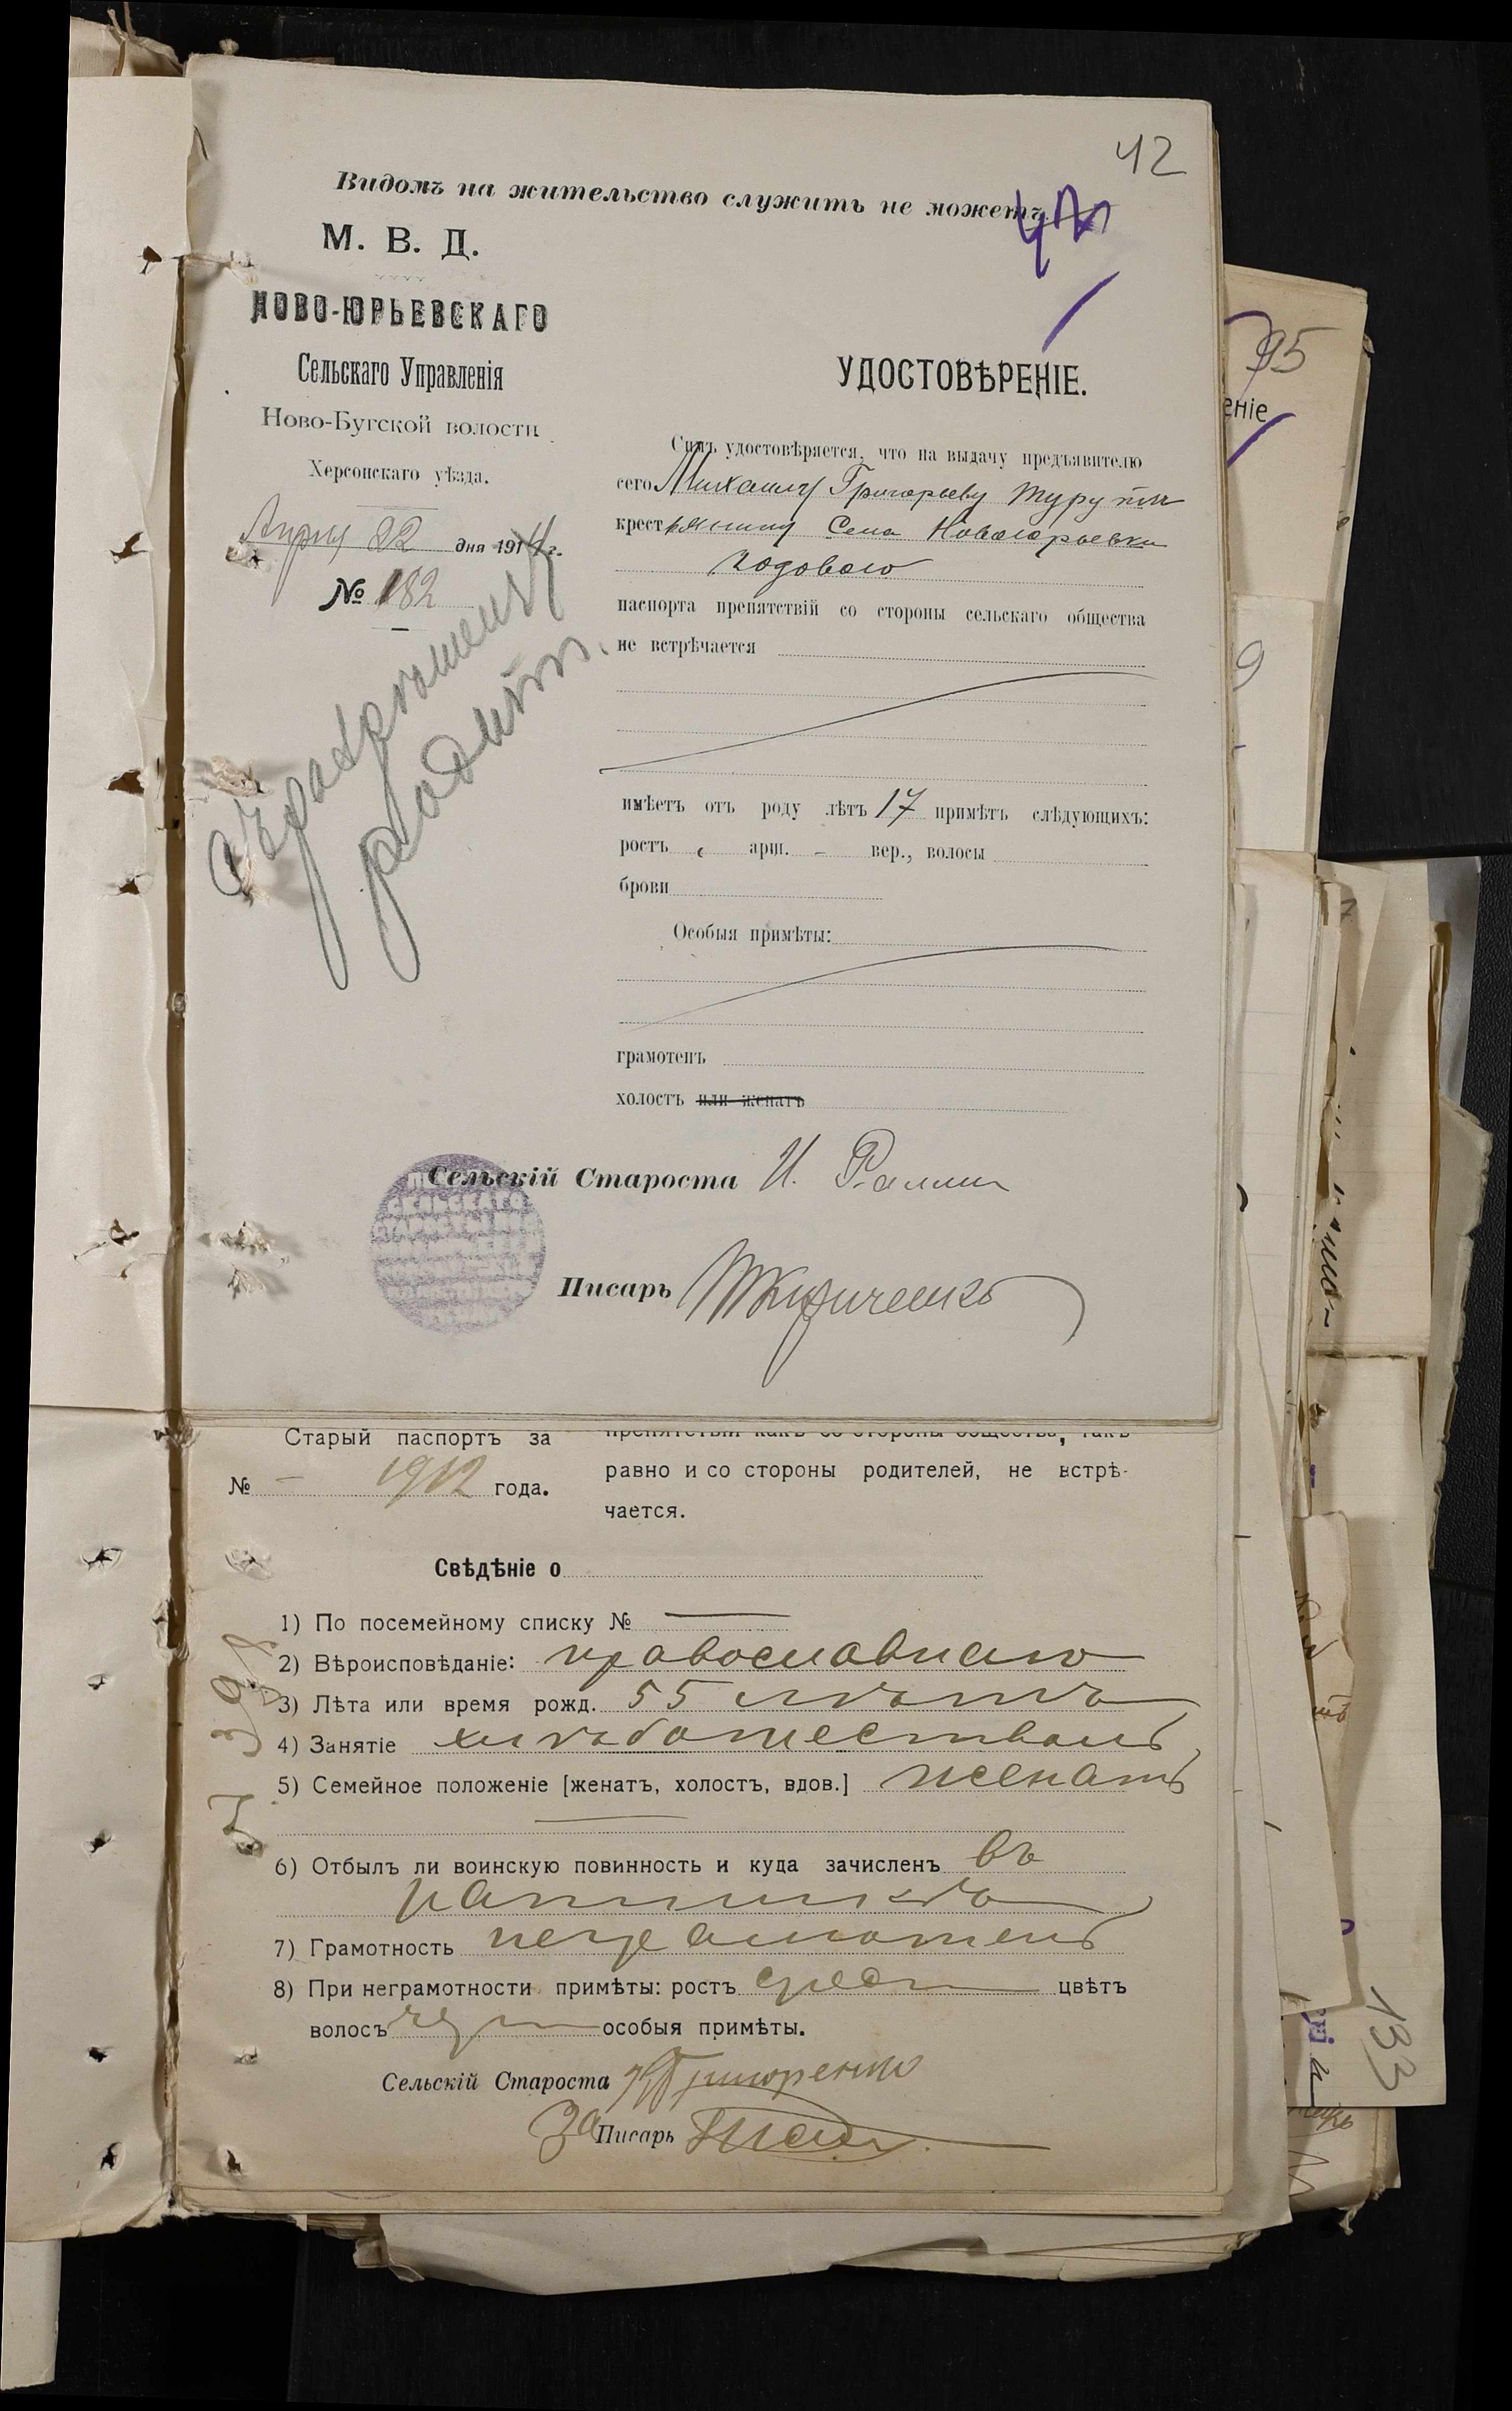 42
Видомъ на жительство служить не можетъ.
М. В. Д.
НОВО-ЮРЬЕВСКАГО
Сельскаго Управленія
Ново-Бугской волости
Херсонскаго уѣзда.
Апрѣля 22 дня 1914 г.
№ 182
УДОСТОВѢРЕНІЕ.
Симъ удостовѣряется, что на выдачу предъявителю
сего Михаилу Григорьеву
крестьянину Села Новоюрьевки
годового
паспорта препятствій со стороны сельскаго общества
не встрѣчается
имѣетъ отъ роду лѣтъ 17 примѣтъ слѣдующихъ:
ростъ арш. – вер., волосы
брови
Особыя примѣты:
грамотенъ
холостъ или женатъ
Сельскій Староста И.
Писарь
Старый паспортъ за
№ – 1912 года.
препятствій какъ со стороны общества, такъ
равно и со стороны родителей, не встрѣ-
чается.
Свѣдѣніе о
1) По посемейному списку № —
2) Вѣроисповѣданіе: православнаго
3) Лѣта или время рожд. 55 лѣтъ
4) Занятіе хлѣбопашествомъ
5) Семейное положеніе [женатъ, холостъ, вдов.] женатъ
6) Отбылъ ли воинскую повинность и куда зачисленъ въ
7) Грамотность неграмотенъ
8) При неграмотности примѣты: ростъ средн цвѣтъ
волосъ особыя примѣты.
Сельскій Староста Григоренко
За Писарь
95
еніе
9
133